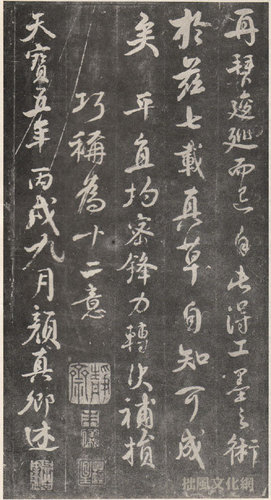 再拜逡巡而退自此得工墨之術
於茲七載真草自知可成
矣 平直均密鋒力轉決補損
巧稱為十二意
天寶五年丙戌九月顏真卿述
拙風文化網